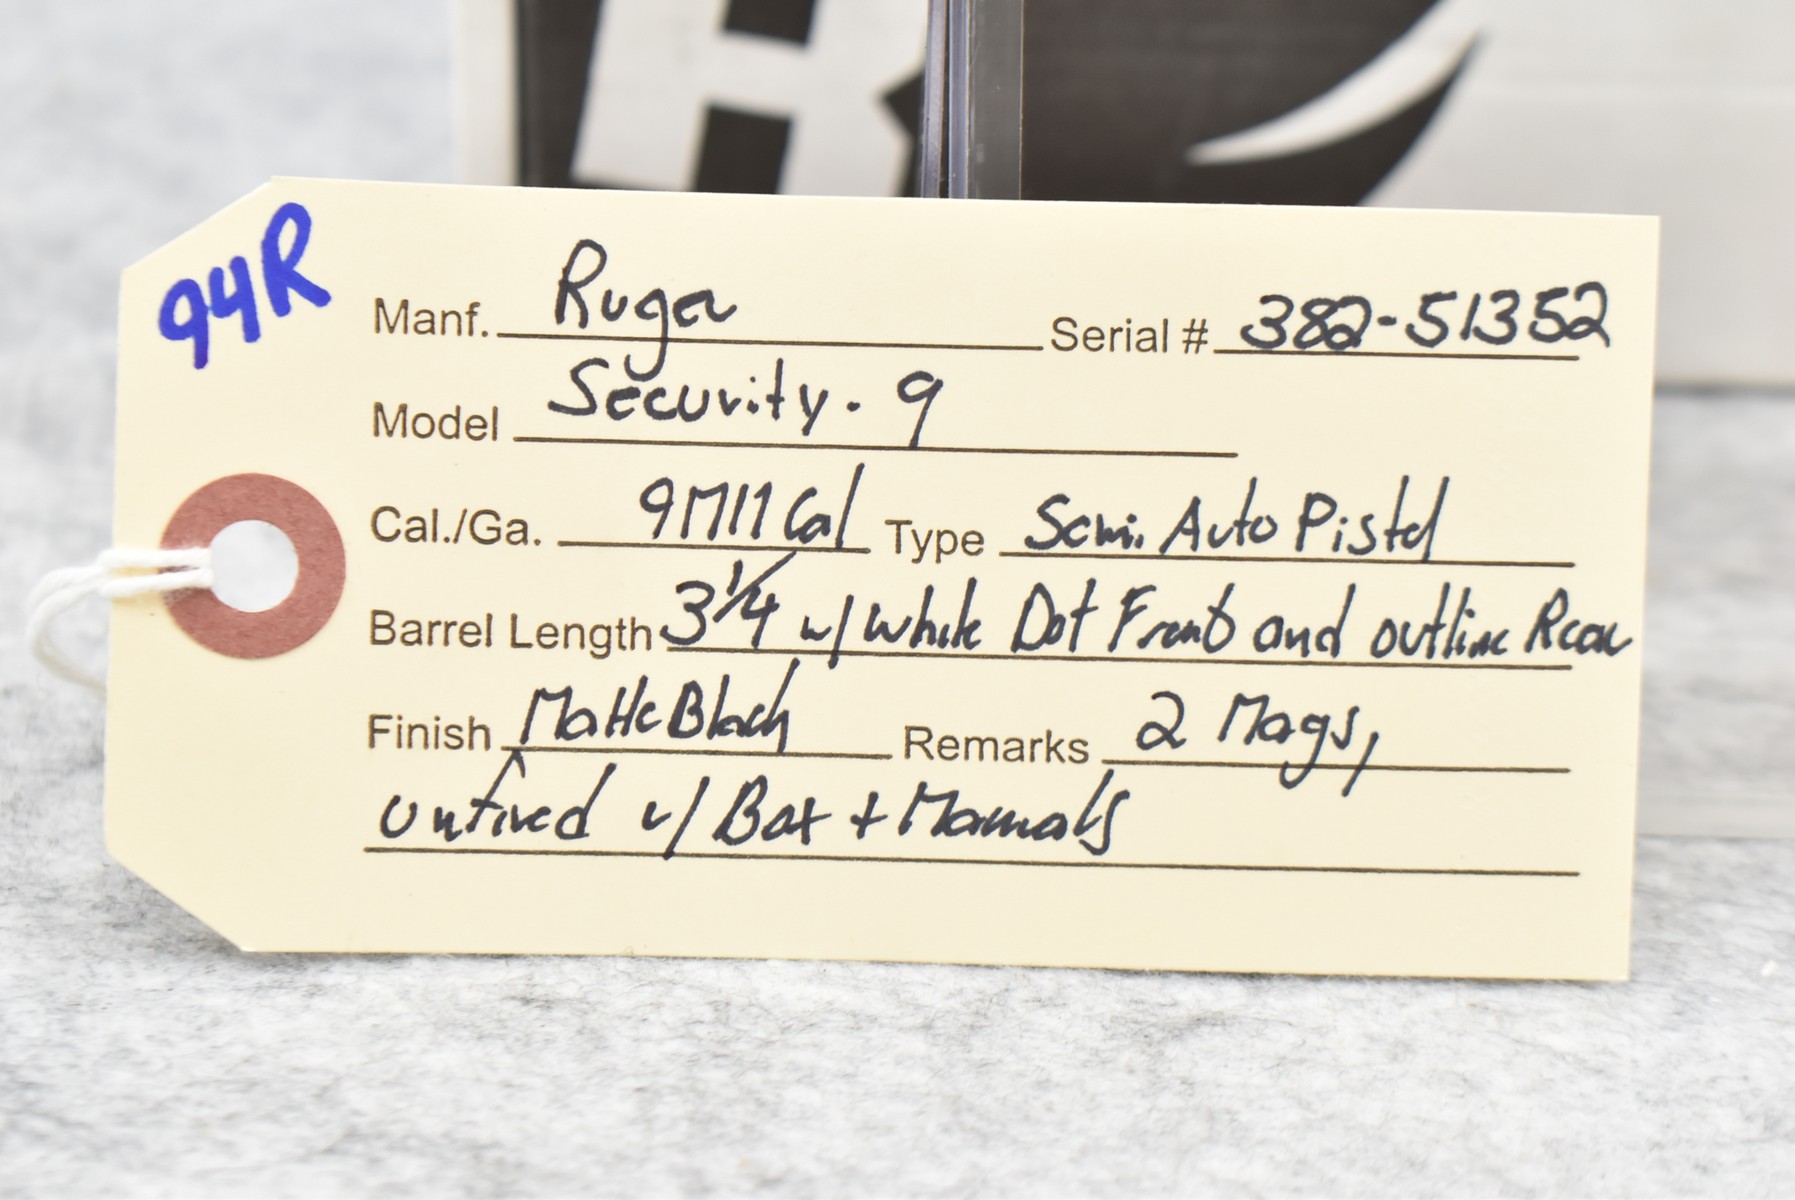 94R
Manf. Ruger Serial # 382-51352
Model Security-9
Cal./Ga. 9MM Cal Type Semi-Auto Pistol
Barrel Length 3 1/4 w/ White Dot Front and outline Rear
Finish Matte Black Remarks 2 Mags,
unfired w/ Box + Manuals